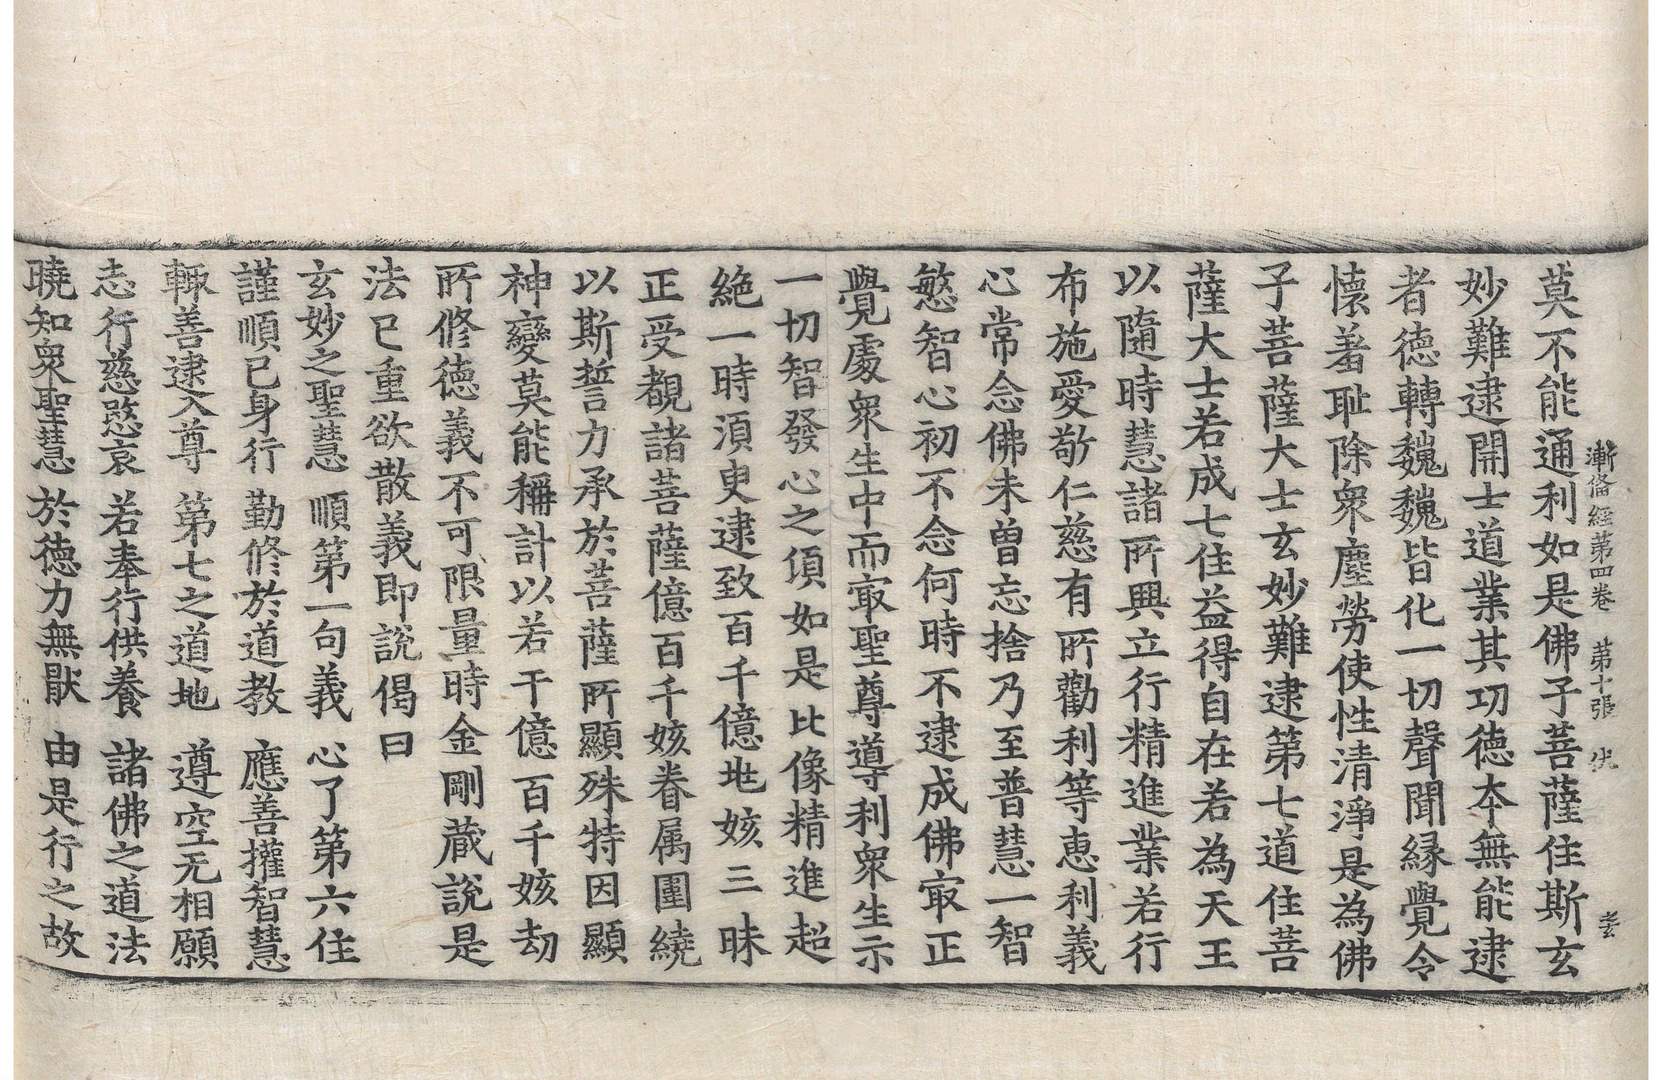 漸俻經第四卷　第十張　伏
莫不能通利如是佛子菩薩住斯玄
妙難逮開士道業其功德夲無能逮
者德轉巍巍皆化一切聲聞縁覺令
懷羞耻除衆塵勞使性清淨是為佛
子菩薩大士玄妙難逮第七道住菩
薩大士若成七住益得自在若為天王
以隨時慧諸所興立行精進業若行
布施愛敬仁慈有所勸利等恵利義
心常念佛未曾忘捨乃至普慧一智
慜智心初不念何時不逮成佛㝡正
覺處衆生中而㝡聖尊導利衆生示
一切智發心之頃如是比像精進超
絶一時須臾逮致百千億兆姟三昧
正受覩諸菩薩億百千姟眷属圍繞
以斯誓力承於菩薩所顯殊特因顯
神變莫能稱計以若干億百千姟劫
所修德義不可限量時金剛藏說是
法已重欲散義即說偈曰
玄妙之聖慧　順第一句義　心了第六住
謹順已身行　勤修於道教　應善權智慧
輙善逮入尊　第七之道地　遵空无相願
志行慈愍哀　若奉行供養　諸佛之道法
曉知衆聖慧　於德力無猒　由是行之故